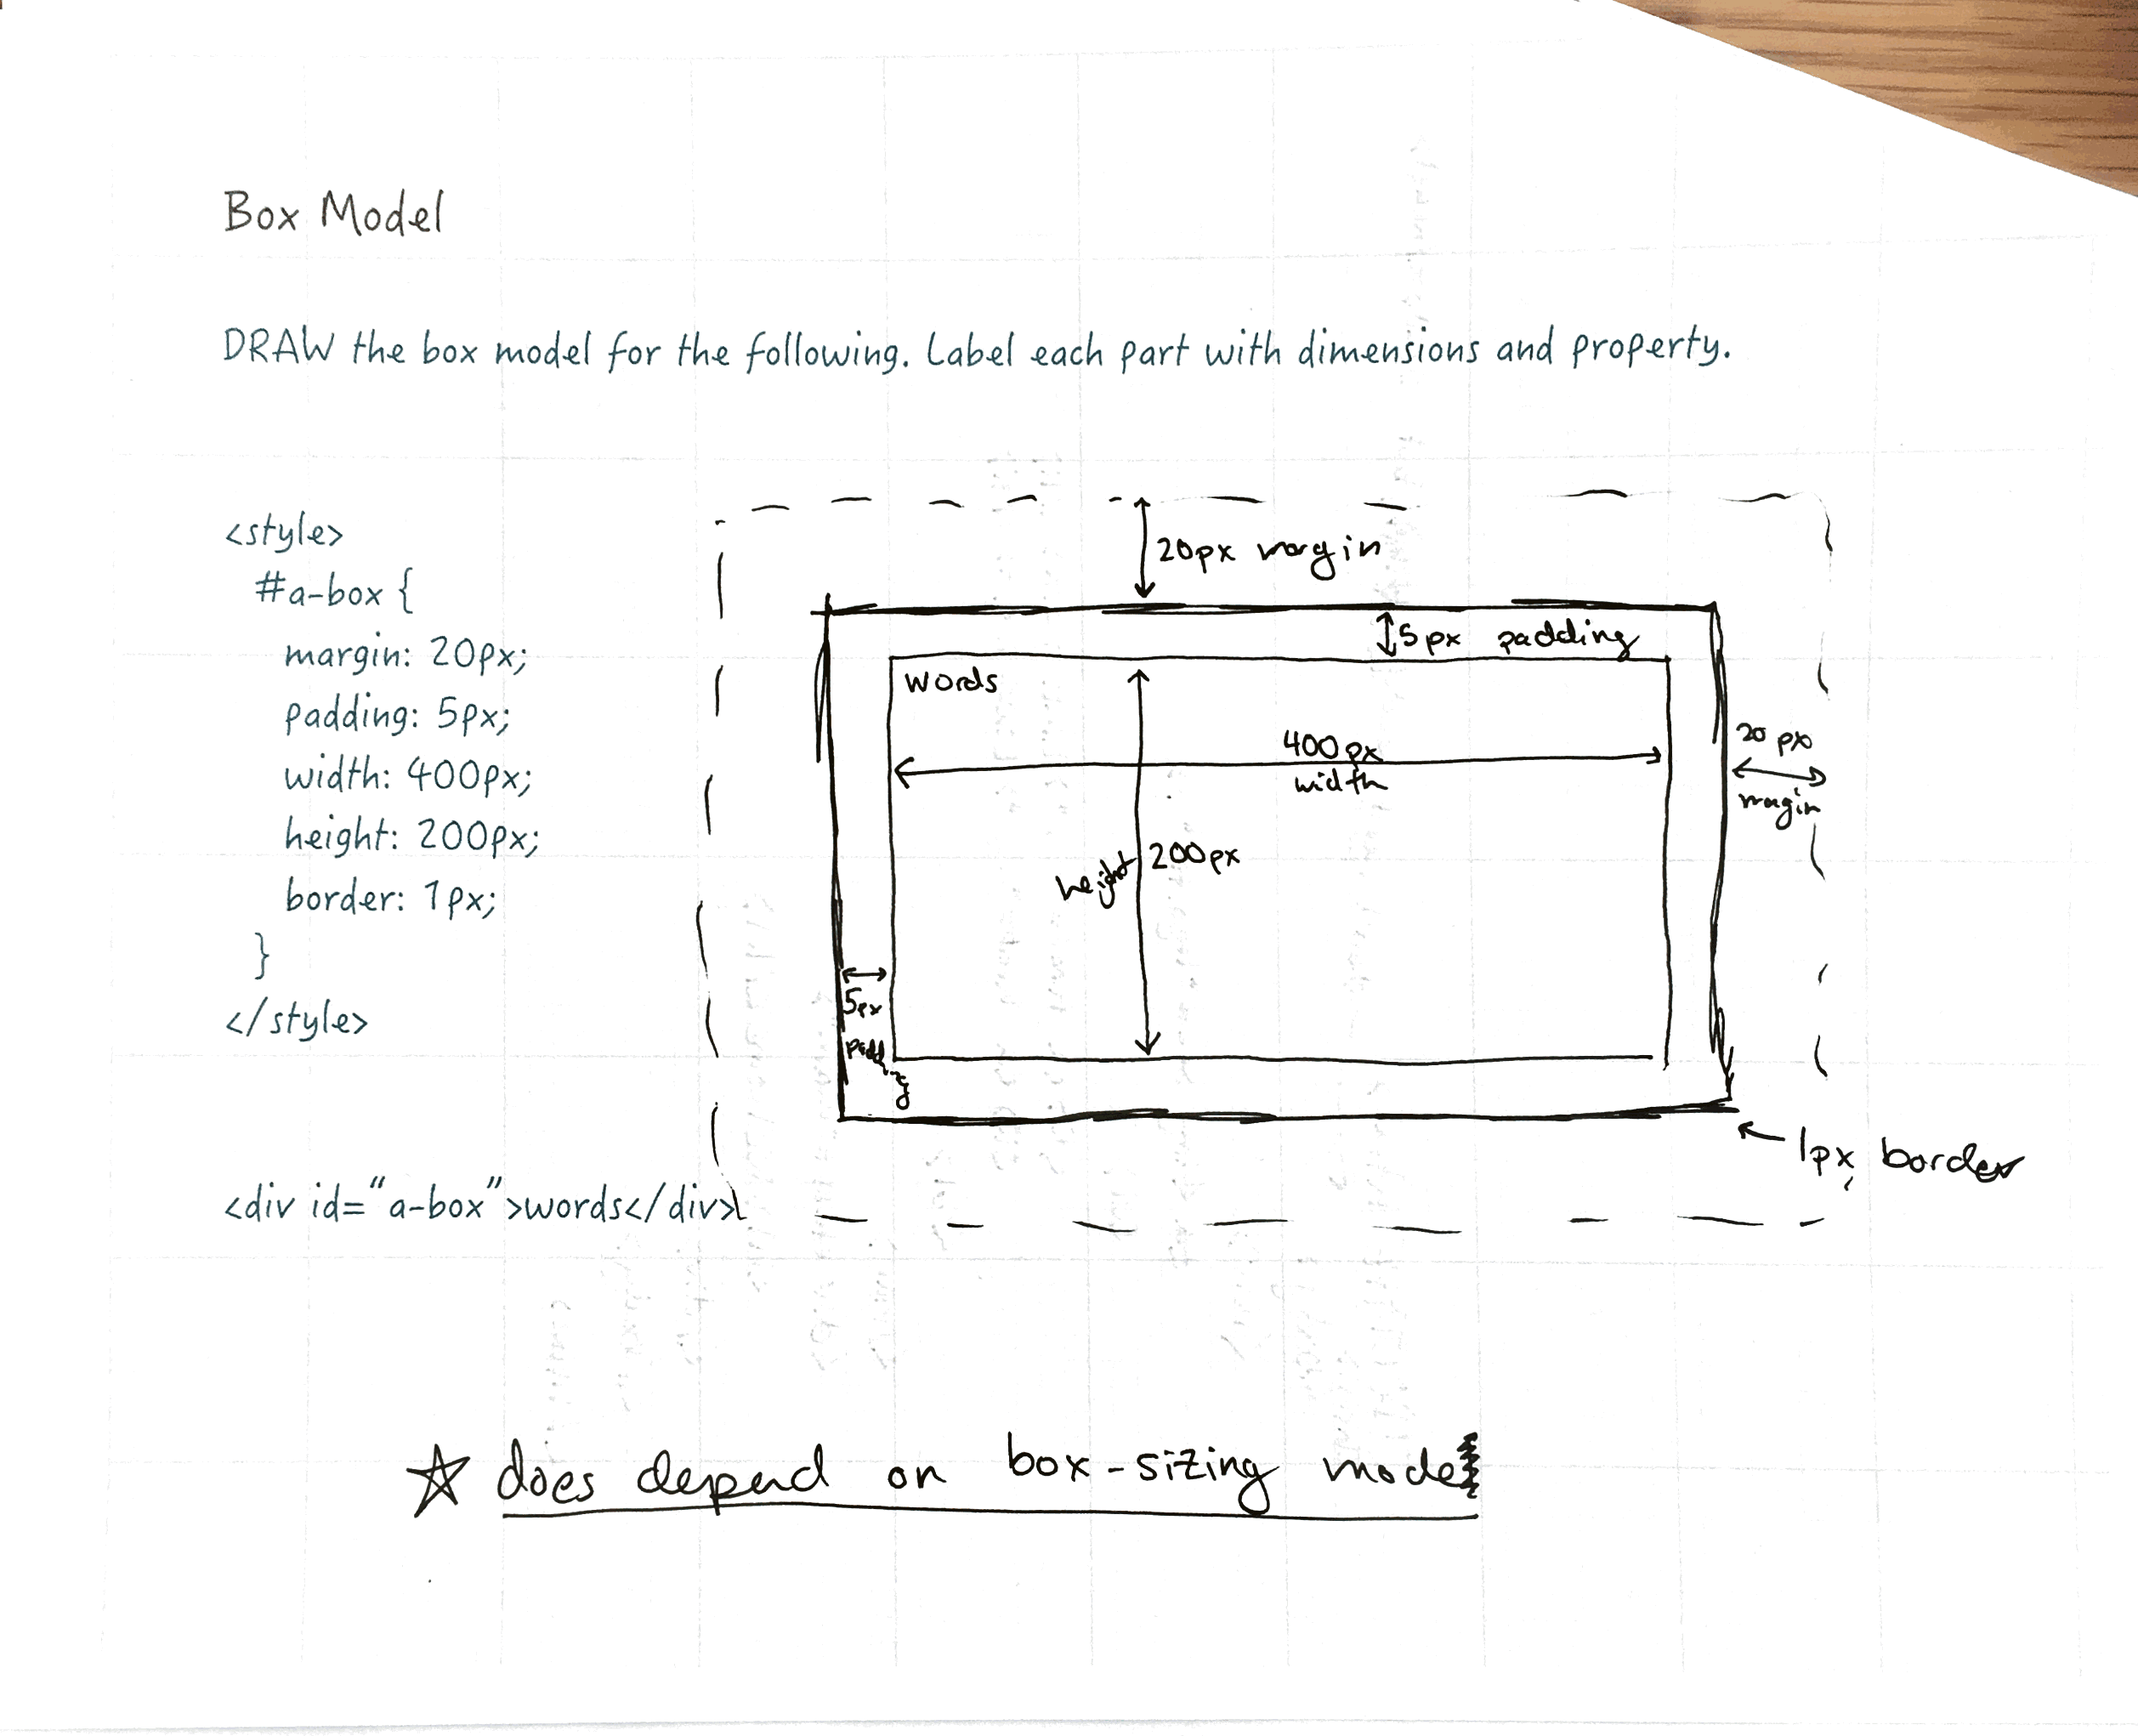 Box Model
DRAW the box model for the following. Label each part with dimensions and property.
<style>
#a-box {
margin: 20px;
padding: 5px;
width: 400px;
height: 200px;
border: 1px;
}
</style>
<div id="a-box">words</div>
20px margin
5px padding
words
400px
width
20 px
margin
height
200px
5px
padding
1px border
does depend on box-sizing mode